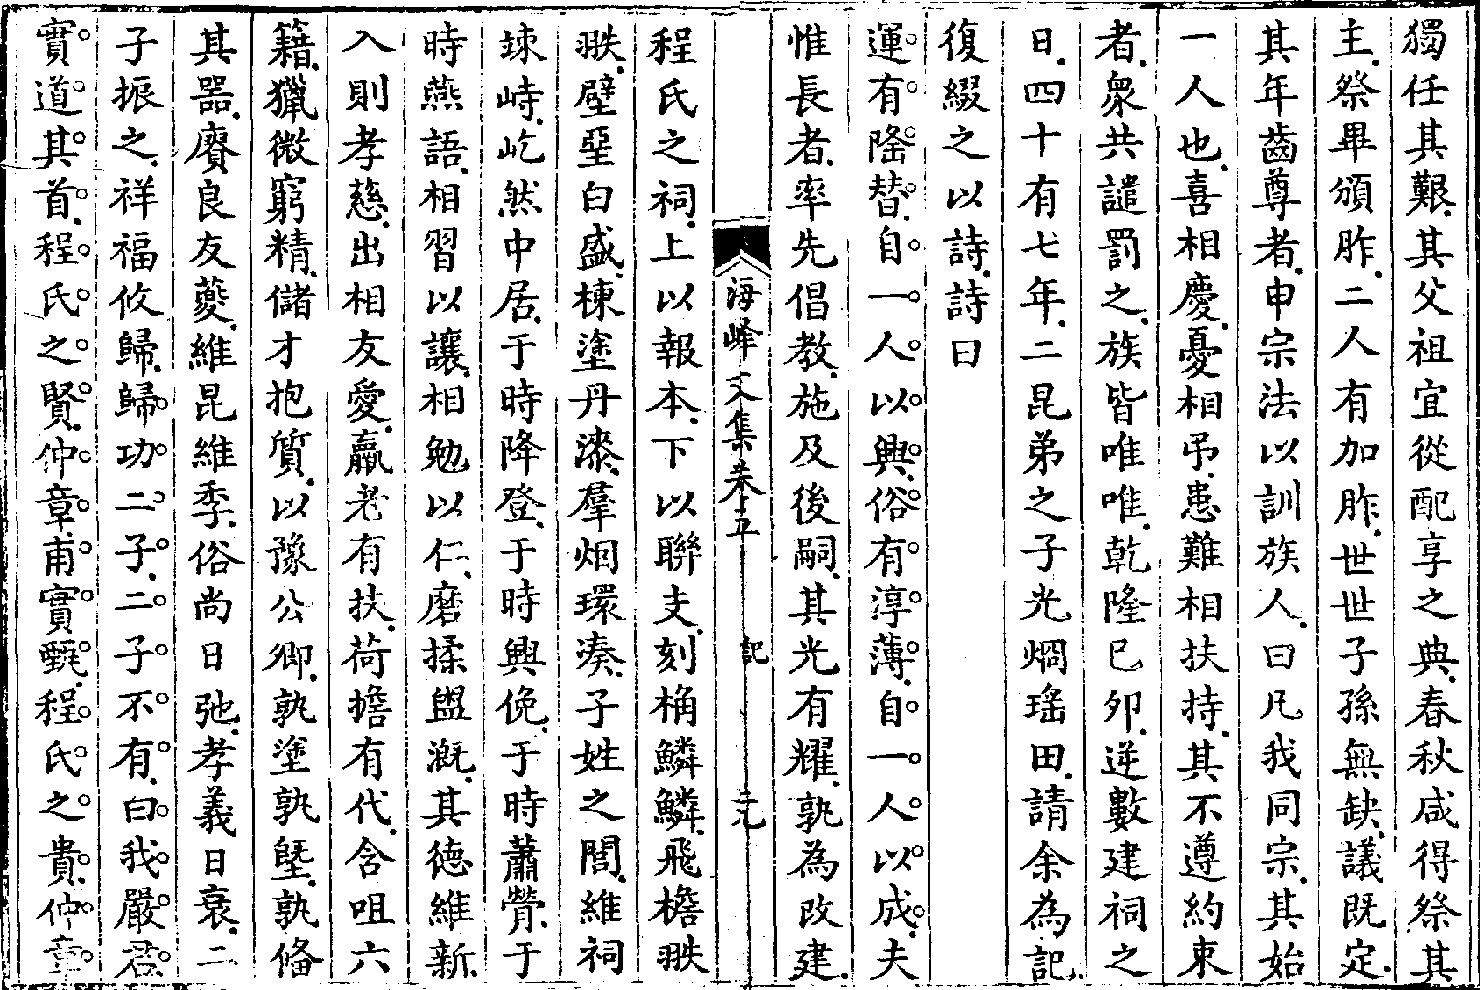 獨任其艱其父祖宜從配享之典春秋咸得祭其
主祭畢頒胙二人有加胙世世子孫無缺議既定
其年齒尊者申宗法以訓族人曰凡我同宗其始
一人也喜相慶憂相弔患難相扶持其不遵約束
者衆共譴罰之族皆唯唯乾隆己卯逆數建祠之
日四十有七年二昆弟之子光烱瑤田請余為記
復綴之以詩詩曰
運有隆替自一人以興俗有淳薄自一人以成夫
惟長者率先倡教施及後嗣其光有耀孰為改建
海峰文集卷五 記 三九
程氏之祠上以報本下以聯支刻桷鱗鱗飛檐翐
翐壁堊白盛棟塗丹漆羣烟環湊子姓之閭維祠
竦峙屹然中居于時降登于時興俛于時蕭膋于
時燕語相習以讓相勉以仁磨揉盥溉其德維新
入則孝慈出相友愛羸老有扶荷擔有代含咀六
籍獵微窮精儲才抱質以豫公卿孰塗孰塈孰偹
其器賡良友薆維昆維季俗尚日弛孝義日衰二
子振之祥福攸歸歸功二子二子不有曰我嚴君
實道其首程氏之賢仲章甫實甄程氏之貴仲章